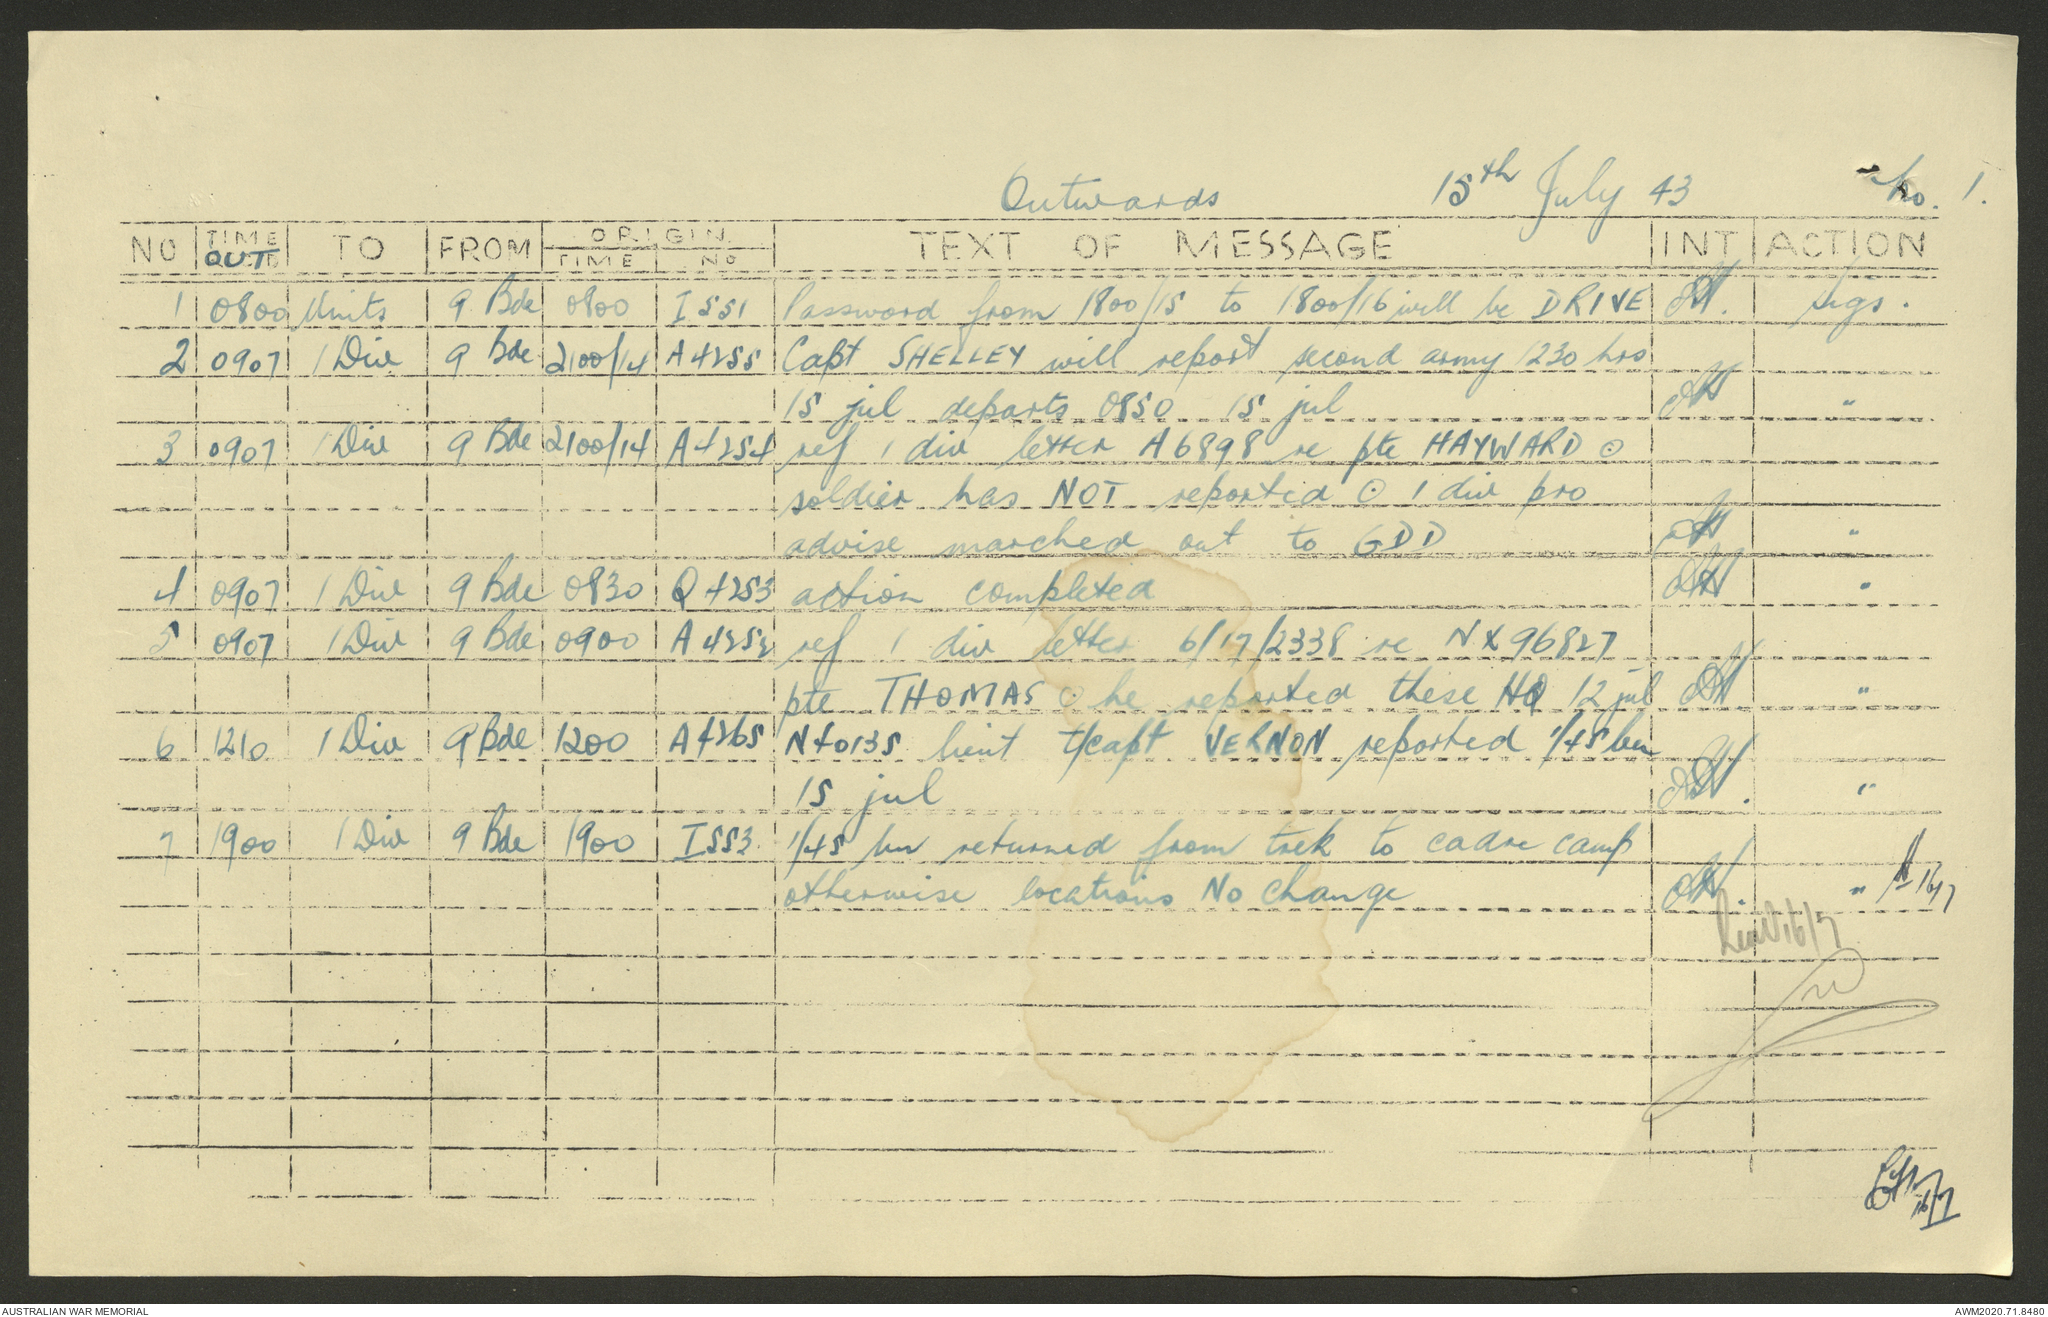 Outwards 15th July 43 No. 1.
NO TIME OUT TO FROM ORIGIN TIME NO TEXT OF MESSAGE INT ACTION
1 0800 Units 9 Bde 0800 I551 Password from 1800/15 to 1800/16 will be DRIVE Sigs.
2 0907 1 Div 9 Bde 2100/14 A4255 Capt SHELLEY will report second army 1230 hrs
15 jul departs 0850 15 jul "
3 0907 1 Div 9 Bde 2100/14 A4254 ref 1 div letter A6898 re pte HAYWARD ⊙
soldier has NOT reported ⊙ 1 div pro
advise marched out to GDD "
4 0907 1 Div 9 Bde 0830 Q4253 action completed "
5 0907 1 Div 9 Bde 0900 ref 1 div letter 6/17/2338 re NX96827
pte THOMAS ⊙ he reported these HQ 12 jul "
6 1210 1 Div 9 Bde 1200 A4265 lieut t/capt VERNON reported 1/45 bn
15 jul "
7 1900 1 Div 9 Bde 1900 I553 1/45 bn returned from trek to cadre camp
otherwise locations No change " 16/7
16/7
16/7
AUSTRALIAN WAR MEMORIAL AWM2020.71.8480